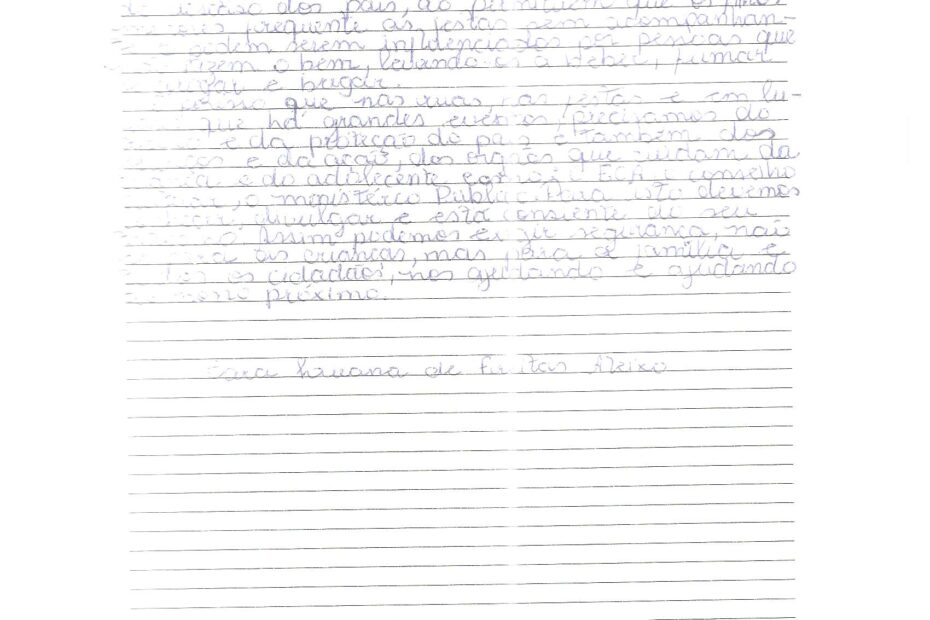 dos pais, ao permitirem que os
frequente as festas sem acompanhan-
podem serem influenciados por pessoas que
fizem o bem, levando-os a beber, fumar
e brigar.
que nas ruas, as festas e em lu-
que há grandes eventos, precisamos do
e da proteção do pais e também dos
e da ação, dos orgãos que cuidam da
e do adolecente como o ECA, o conselho
, o menistério Público. Para isto devemos
, divulgar e está consiente do seu
Assim podemos exijir segurança, não
as crianças, mas para a familia e
os cidadãos, nos ajudando e ajudando
próximo.
de Freitas Aleixo